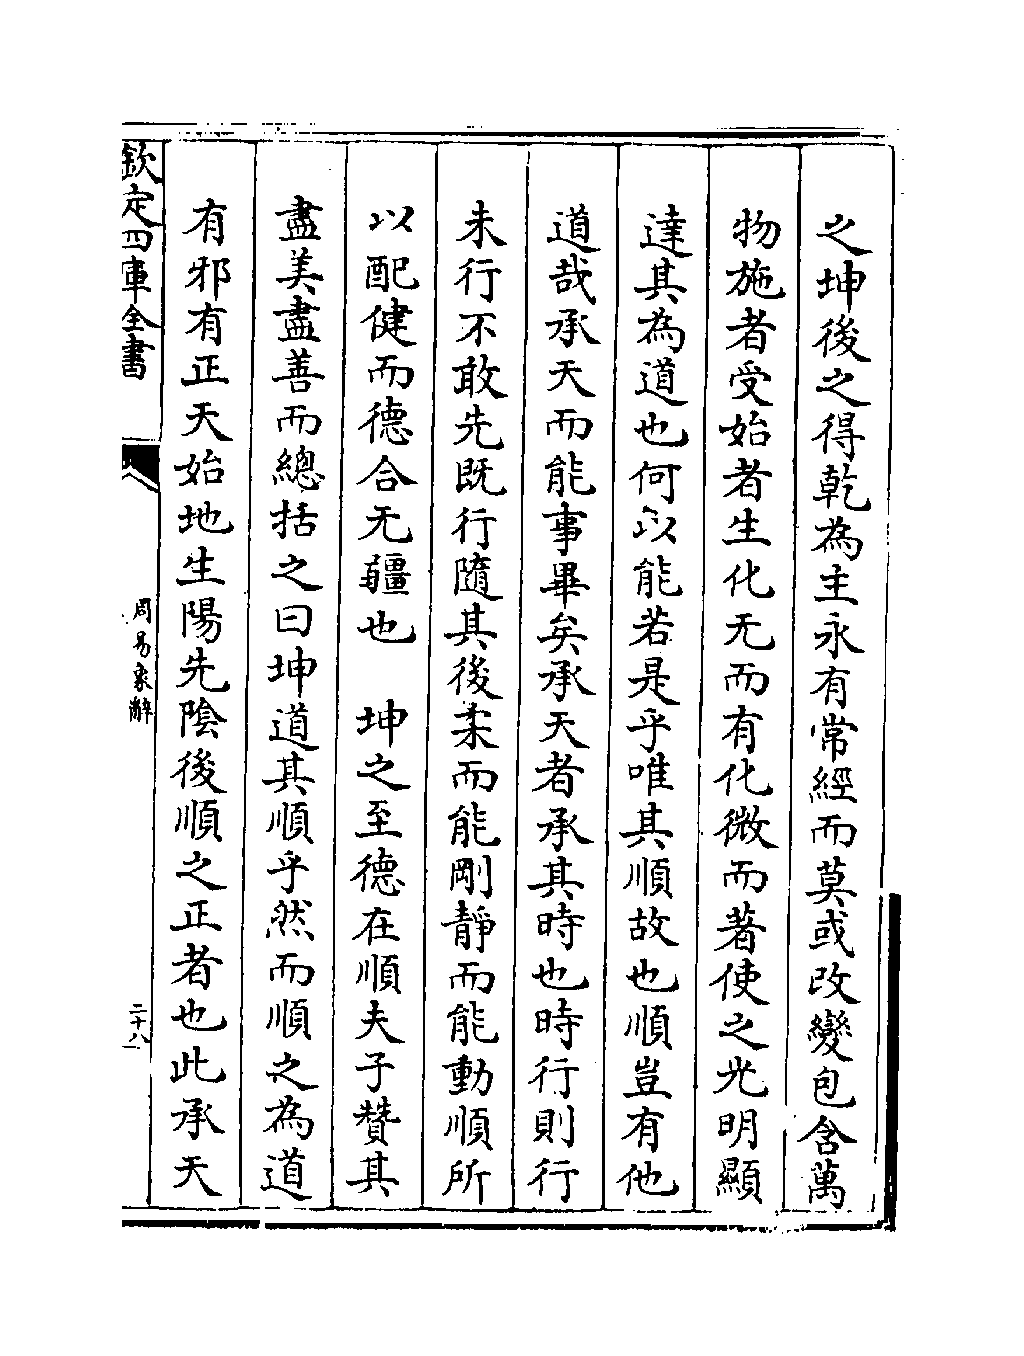 之坤後之得乾為主永有常經而莫或改變包含萬
物施者受始者生化无而有化微而著使之光明顯
達其為道也何以能若是乎唯其順故也順豈有他
道哉承天而能事畢矣承天者承其時也時行則行
未行不敢先既行隨其後柔而能剛靜而能動順所
以配健而德合无疆也　坤之至德在順夫子贊其
盡美盡善而總括之曰坤道其順乎然而順之為道
有邪有正天始地生陽先陰後順之正者也此承天
欽定四庫全書
周易象辭
二十八